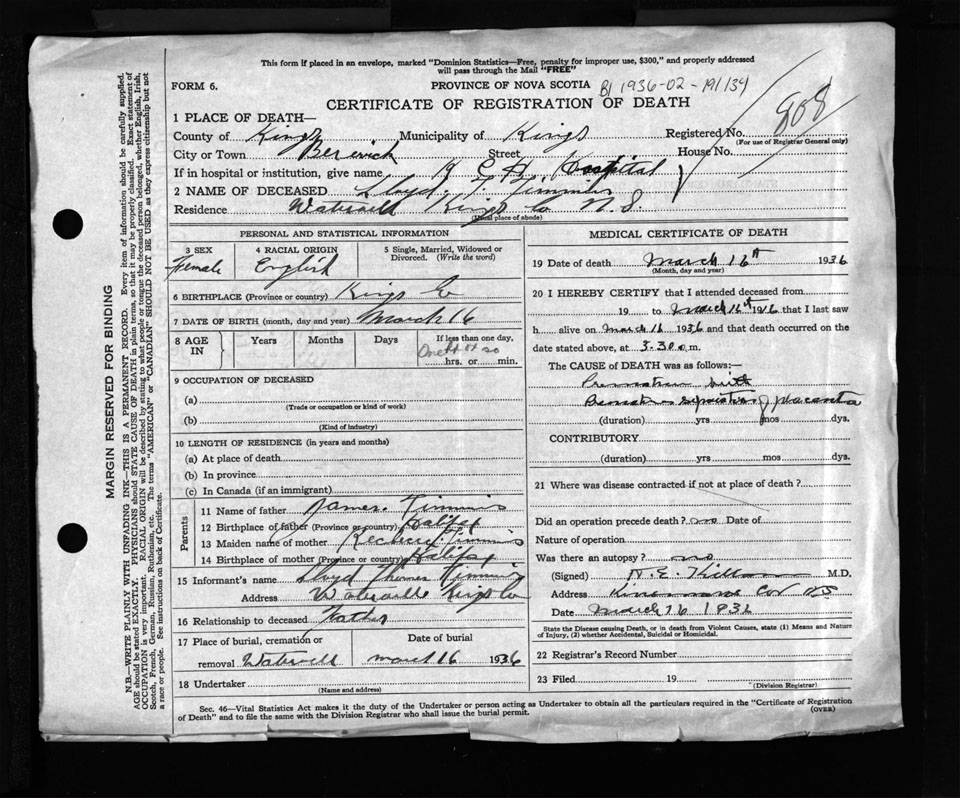 This form if placed in an envelope, marked "Dominion Statistics—Free, penalty for improper use, $300," and properly addressed
will pass through the Mail "FREE"
FORM 6. PROVINCE OF NOVA SCOTIA B1 1936-02-191134
CERTIFICATE OF REGISTRATION OF DEATH
808
1 PLACE OF DEATH—
County of Kings Municipality of Kings Registered No.
(For use of Registrar General only)
City or Town Berwick Street House No.
If in hospital or institution, give name Hospital
2 NAME OF DECEASED Lloyd
Residence Kings Co N.S
(Usual place of abode)
PERSONAL AND STATISTICAL INFORMATION
3 SEX 4 RACIAL ORIGIN 5 Single, Married, Widowed or Divorced. (Write the word)
Female English
6 BIRTHPLACE (Province or country) Kings Co
7 DATE OF BIRTH (month, day and year) March 16
8 AGE IN Years Months Days If less than one day,
hrs. or min.
9 OCCUPATION OF DECEASED
(a)
(Trade or occupation or kind of work)
(b)
(Kind of industry)
10 LENGTH OF RESIDENCE (in years and months)
(a) At place of death
(b) In province
(c) In Canada (if an immigrant)
Parents
11 Name of father James
12 Birthplace of father (Province or country) Halifax
13 Maiden name of mother
14 Birthplace of mother (Province or country) Halifax
15 Informant's name Lloyd Thomas
Address Kings Co
16 Relationship to deceased Father
17 Place of burial, cremation or Date of burial
removal March 16 1936
18 Undertaker
(Name and address)
MEDICAL CERTIFICATE OF DEATH
19 Date of death March 16th 1936
(Month, day and year)
20 I HEREBY CERTIFY that I attended deceased from
19 to March 16th 1936 that I last saw
h alive on March 16 1936 and that death occurred on
date stated above, at 3.30 a.m.
The CAUSE of DEATH was as follows:—
Premature birth
separation of placenta
(duration) yrs mos dys.
CONTRIBUTORY
(duration) yrs mos dys.
21 Where was disease contracted if not at place of death?
Did an operation precede death? no Date of
Nature of operation
Was there an autopsy? no
(Signed) M.D.
Address
Date March 16 1936
State the Disease causing Death, or in death from Violent Causes, state (1) Means and Nature
of Injury, (2) whether Accidental, Suicidal or Homicidal.
22 Registrar's Record Number
23 Filed 19
(Division Registrar)
Sec. 46—Vital Statistics Act makes it the duty of the Undertaker or person acting as Undertaker to obtain all the particulars required in the "Certificate of Registration
of Death" and to file the same with the Division Registrar who shall issue the burial permit. (OVER)
MARGIN RESERVED FOR BINDING
N.B.—WRITE PLAINLY WITH UNFADING INK—THIS IS A PERMANENT RECORD. Every item of information should be carefully supplied.
AGE should be stated EXACTLY. PHYSICIANS should STATE CAUSE OF DEATH in plain terms, so that it may be properly classified. Exact statement of
OCCUPATION is very important. RACIAL ORIGIN will be described by stating to what people or tongue the deceased person belonged, whether English, Irish,
Scotch, French, German, Russian, Ruthenian, etc. The terms "AMERICAN" or "CANADIAN" SHOULD NOT BE USED as they express citizenship but not
a race or people. See instructions on back of Certificate.